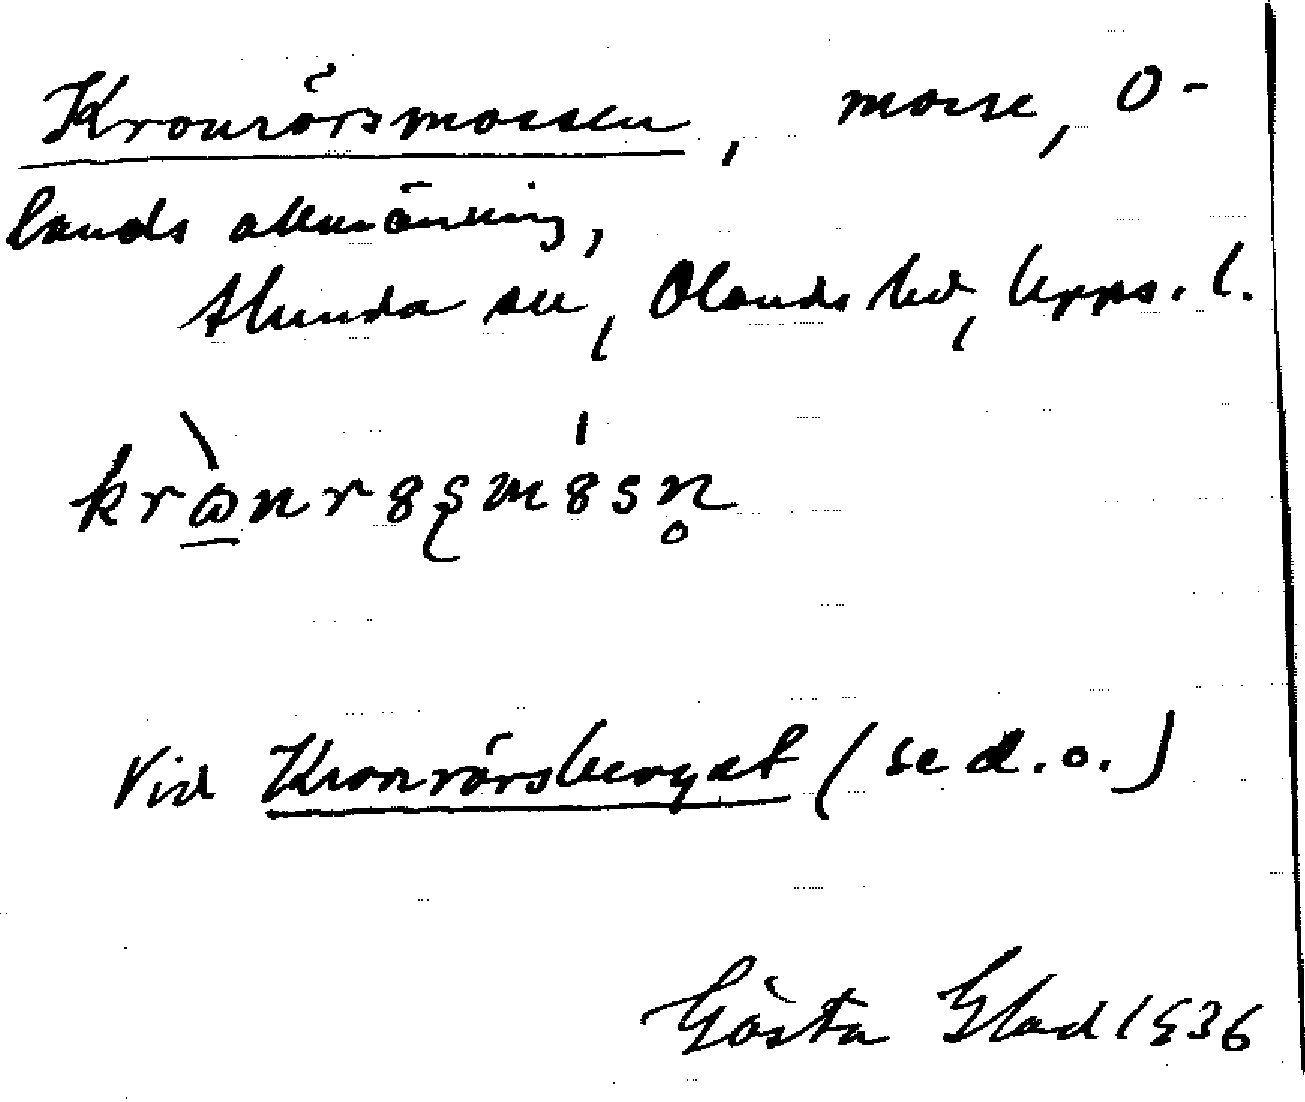 Kronrörsmossen, mosse, O-
lands allmänning,
Alunda sn, Olands hd, Upps. l.
krònrꞷsmósn̥
Vid Kronrörsberget (se d.o.)
Gösta Glad 1936